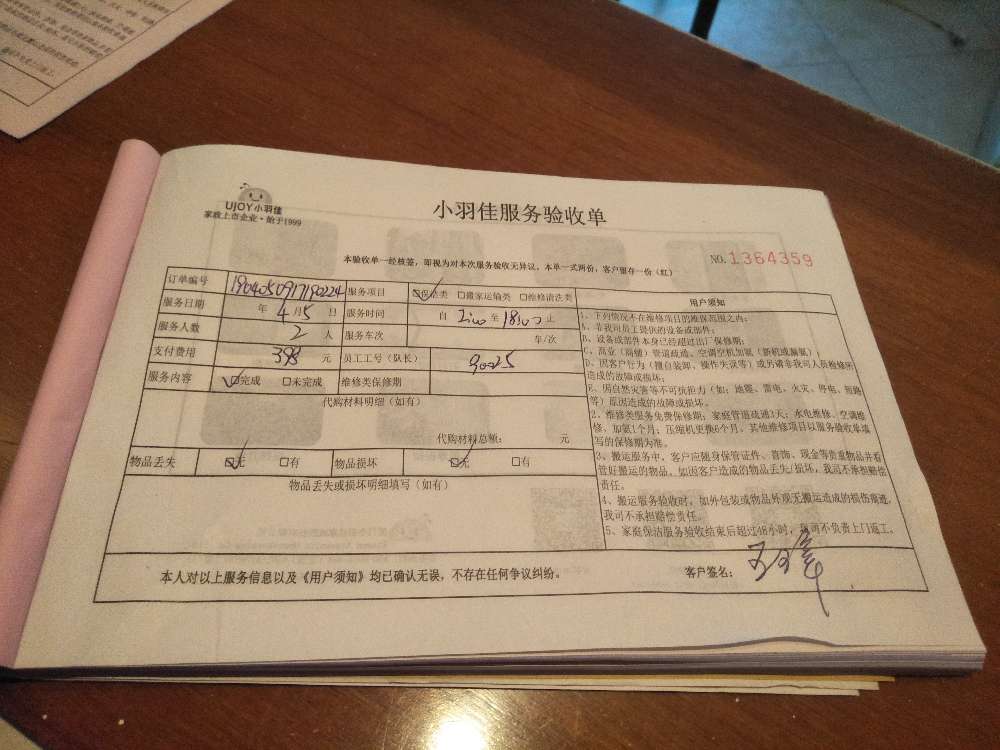 UJOY小羽佳
家政上市企业·始于1999
小羽佳服务验收单
本验收单一经核签，即视为对本次服务验收无异议。本单一式两份，客户留存一份（红）
NO.1364359
订单编号 1904050917190224 服务项目 保洁类 搬家运输类 维修清洗类
服务日期 年 4 月 5 日 服务时间 自 至 18:00 止
服务人数 2 人 服务车次 车/次
支付费用 398 元 员工工号（队长） 90025
服务内容 完成 未完成 维修类保修期
代购材料明细（如有）
代购材料总额： 元
物品丢失 无 有 物品损坏 无 有
物品丢失或损坏明细填写（如有）
用户须知
1、下列情况不在维修项目的维保范围之内：
A、非我司员工提供的设备或部件；
B、设备或部件本身已经超过出厂保修期；
C、商业（商铺）管道疏通、空调空机加氟（新机或漏氟）；
D、因客户行为（擅自装卸、操作失误等）或另请非我司人员检修所
造成的故障或损坏；
E、因自然灾害等不可抗拒力（如：地震、雷电、火灾、停电、短路
等）原因造成的故障或损坏。
2、维修类服务免费保修期：家庭管道疏通3天；水电维修、空调维
修、加氟1个月；压缩机更换6个月，其他维修项目以服务验收单填
写的保修期为准。
3、搬运服务中，客户应随身保管证件、首饰、现金等贵重物品并看
管好搬运的物品，如因客户造成的物品丢失/损坏，我司不承担赔偿
责任。
4、搬运服务验收时，如外包装或物品外观无搬运造成的损伤痕迹，
我司不承担赔偿责任。
5、家庭保洁服务验收结束后超过48小时，我司不负责上门返工。
本人对以上服务信息以及《用户须知》均已确认无误，不存在任何争议纠纷。
客户签名：